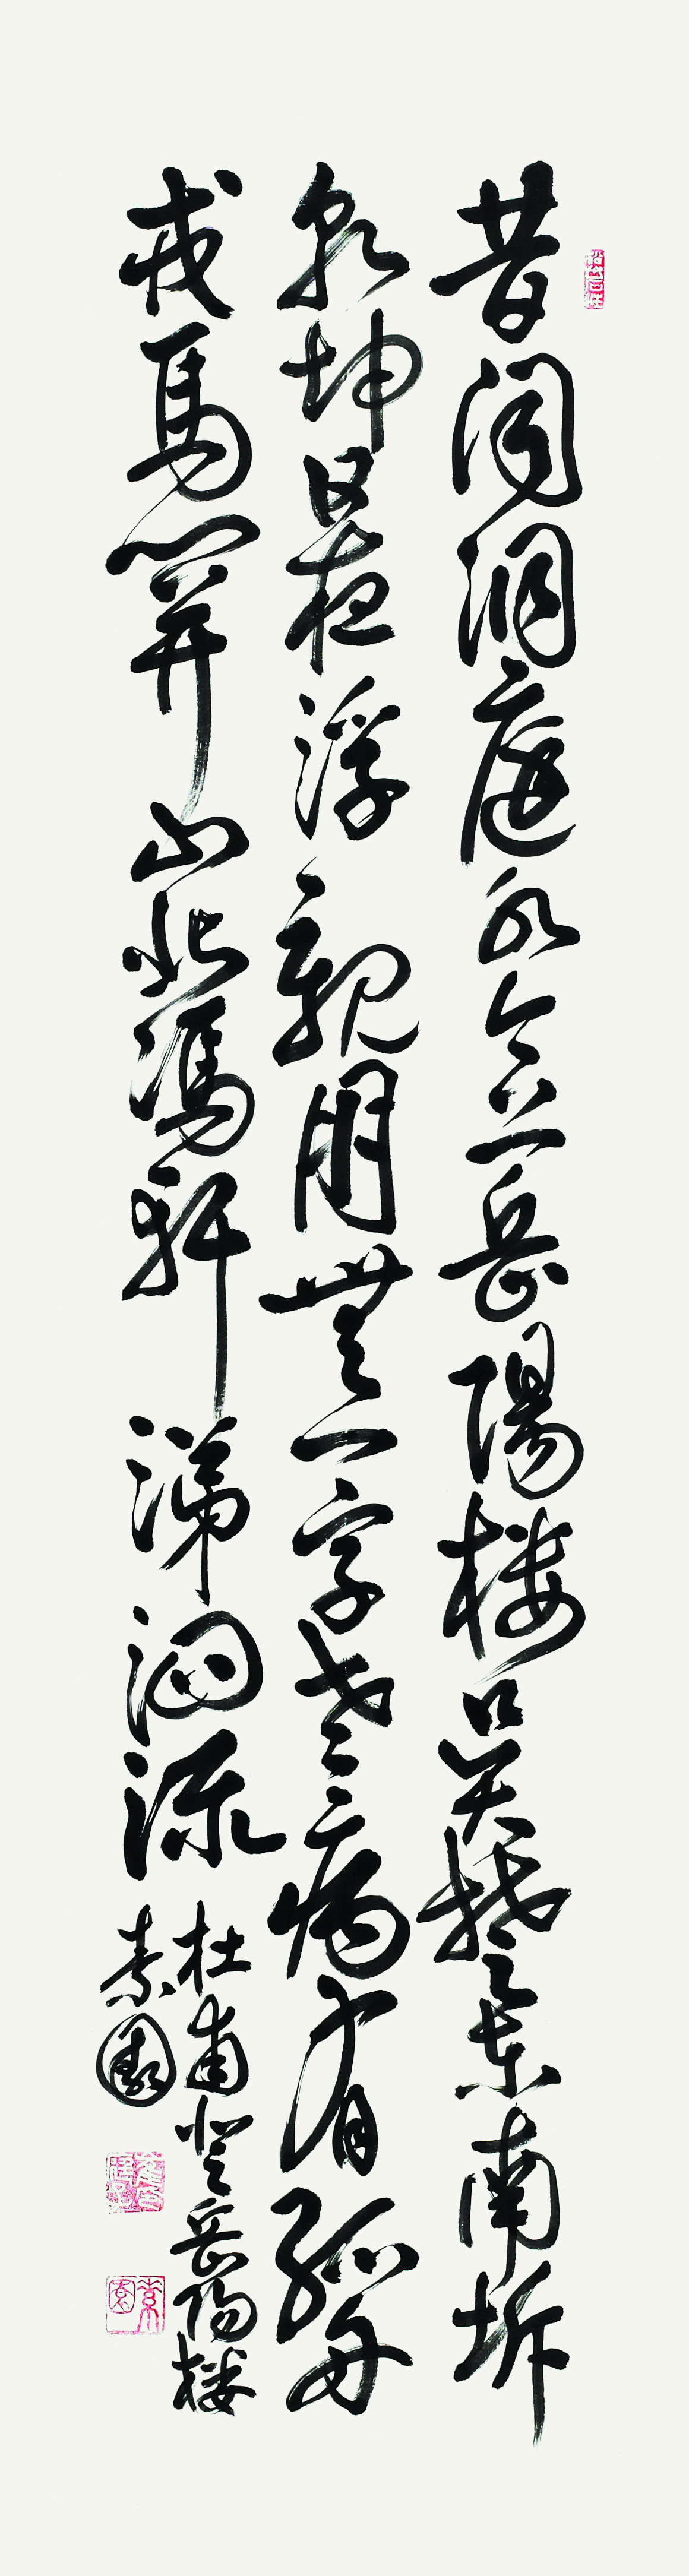 昔聞洞庭水今上岳陽樓吳楚東南坼
乾坤日夜浮親朋無一字老病有孤舟
戎馬關山北憑軒涕泗流
杜甫登岳陽樓
素園
素園